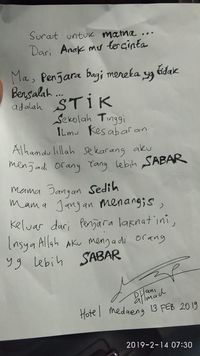 Surat untuk mama ...
Dari Anak mu tercinta
Ma, Penjara bagi mereka yg tidak
Bersalah ...
adalah STIK
Sekolah Tinggi
Ilmu Kesabaran
Alhamdulillah sekarang aku
menjadi orang yang lebih SABAR
mama Jangan Sedih
Mama Jangan Menangis,
Keluar dari Penjara laknat ini,
Insya Allah aku menjadi orang
yg lebih SABAR
ahmad
Hotel Medaeng 13 FEB 2019
2019-2-14 07:30